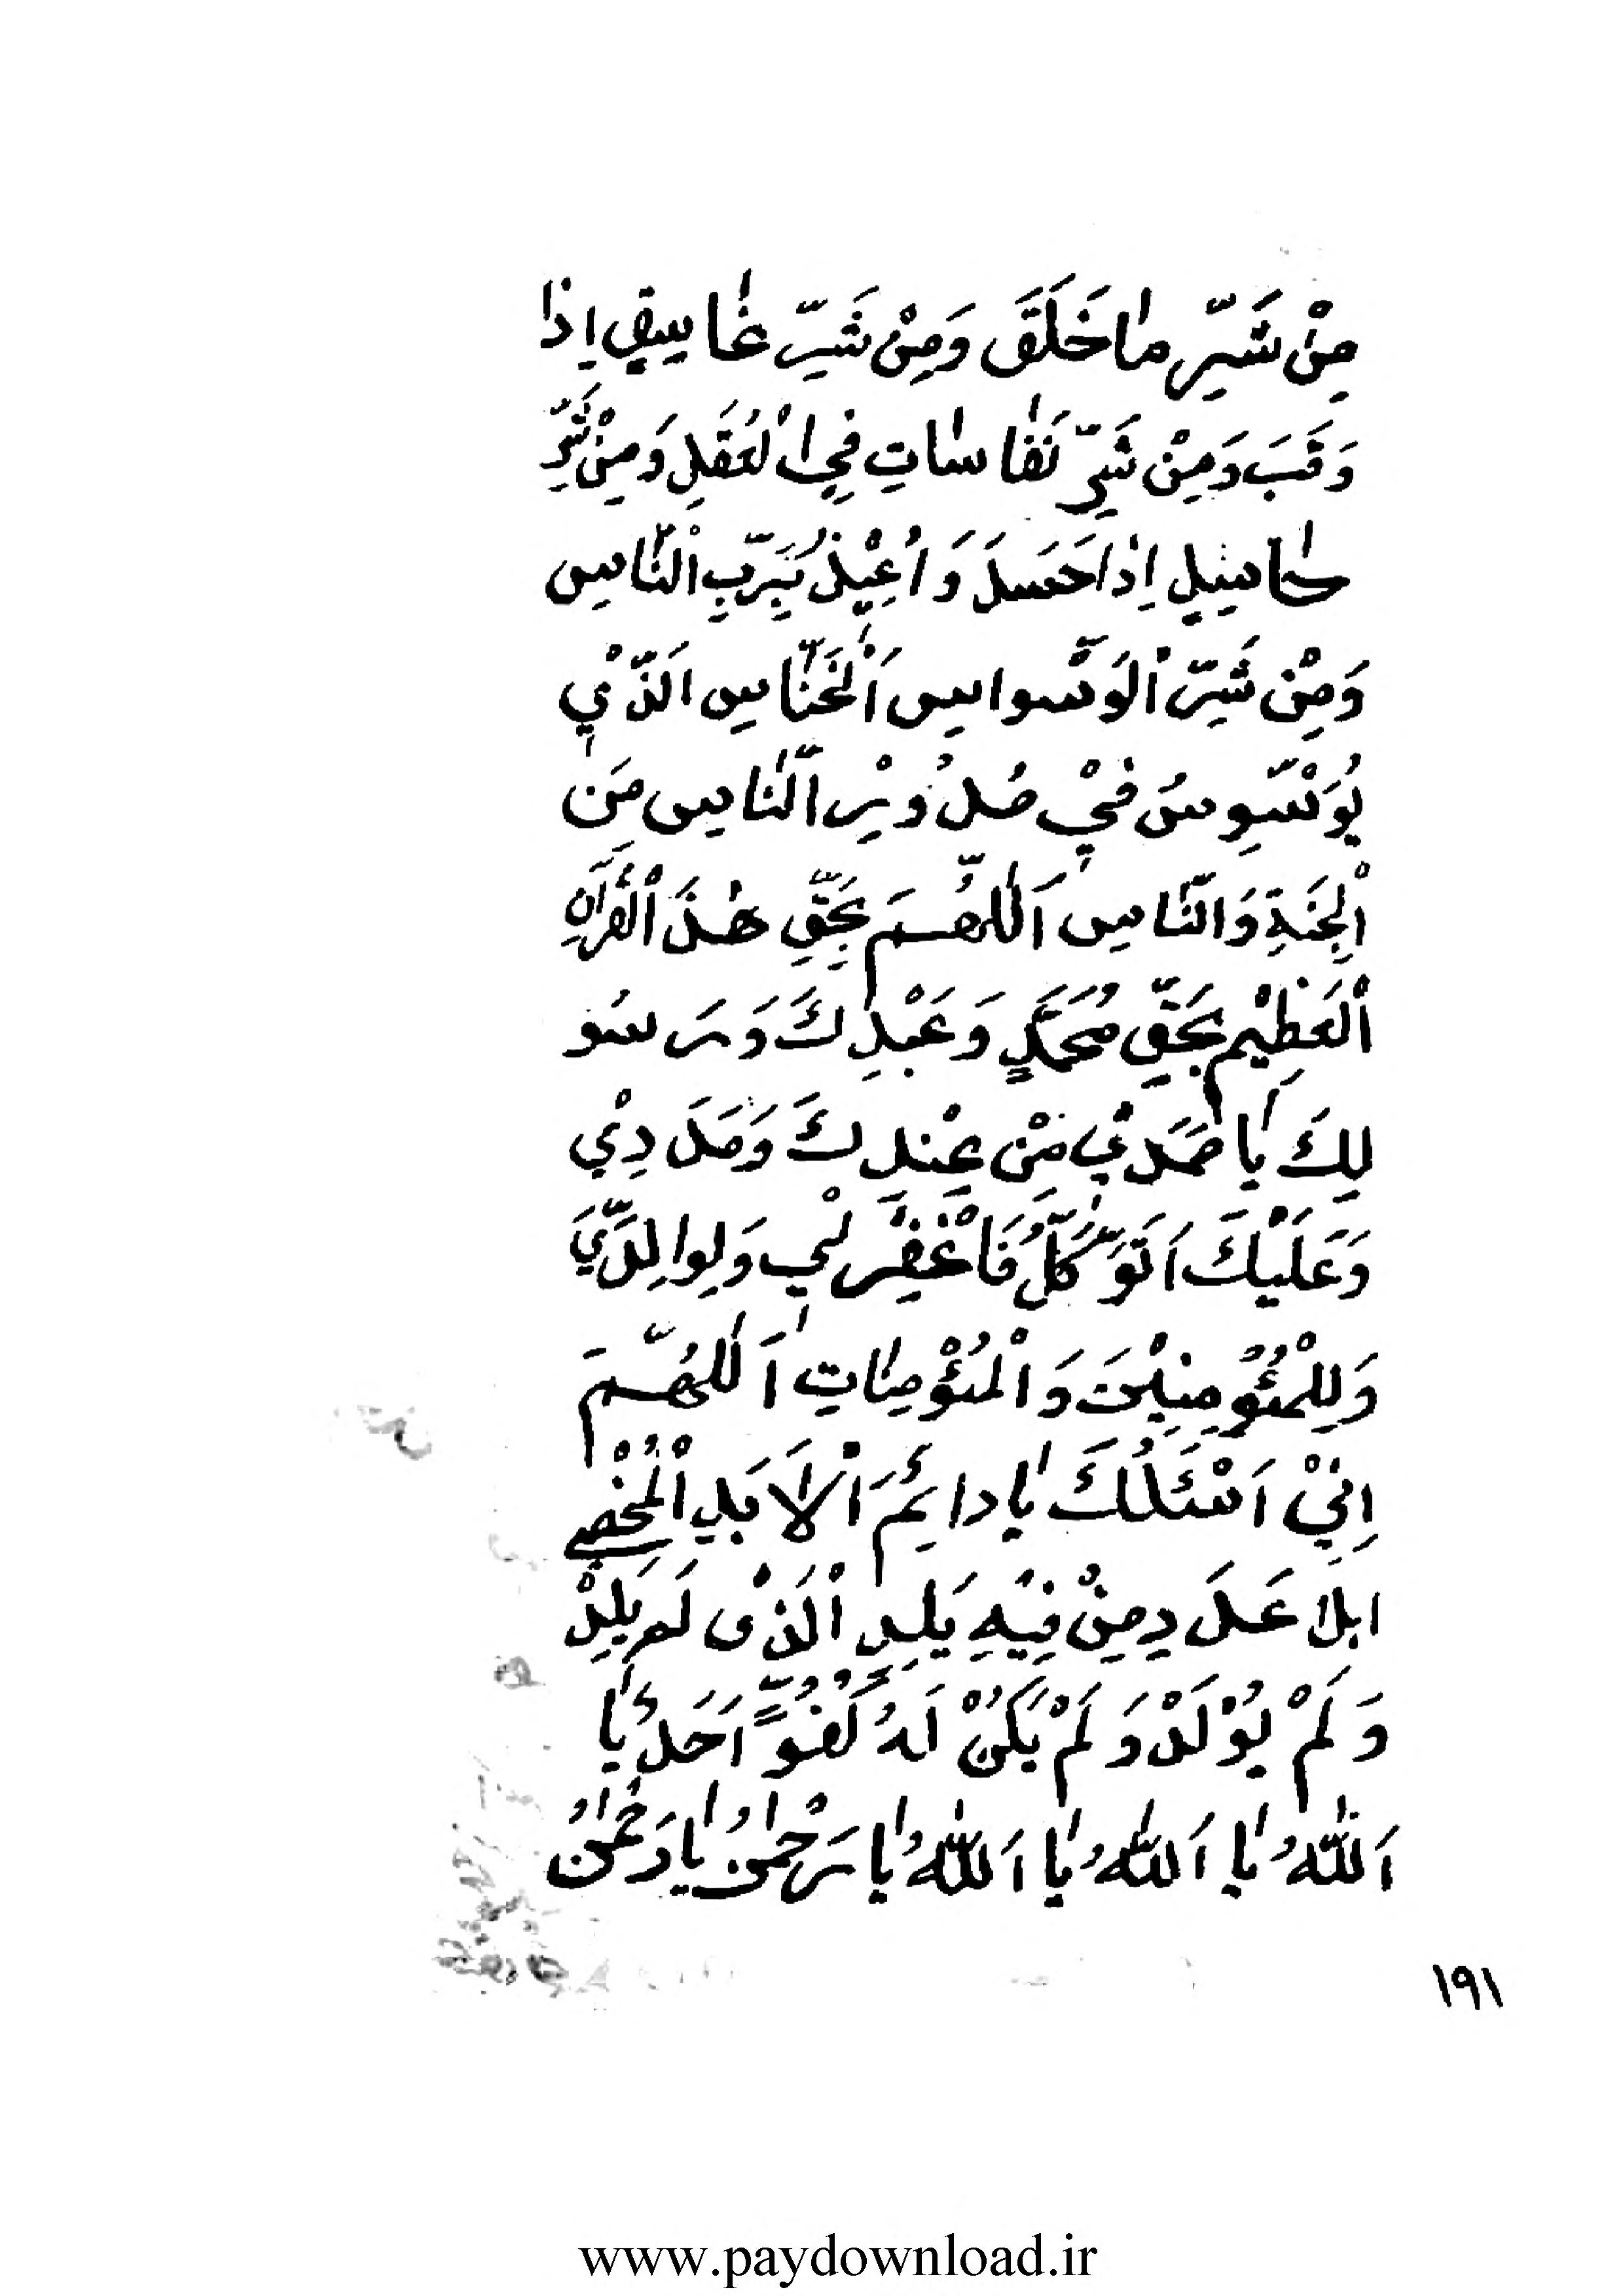 مِنْ شَرِّ مٰا خَلَقَ وَمِنْ شَرِّ غٰاسِقٍ اِذٰا
وَقَبَ وَمِنْ شَرِّ نَفٰاسٰاتِ فِي اْلعُقَدِ وَمِنْ شَرِّ
حٰاسِدٍ اِذٰا حَسَدَ وَ اُعِيْذُ بِرَبِّ اْلنّٰاسِ
وَمِنْ شَرِّ اْلوَسْواسِ اَلْخَنّٰاسِ اَلَذّْي
يُوَسْوِسُ فيْ صُدُوْرِ اَلنّٰاسِ مِنَ
اْلجِنَةِ وَالنّٰاسِ اَللّٰهُمَ بِحَقِّ هٰذَ اْلقُرْآنِ
اْلعَظِيْمِ بِحَقِّ مُحَمَدٍ وَ عَبْدِكَ وَرَسُو
لِكَ يٰا صَمَديْ مِنْ عِنْدِكَ وَمَدَدِيْ
وَعَلَيْكَ اَتَوَكَّلُ فَاغْفِرْ لْي وَلِوالِدَيَّ
وَلِلْمُؤْمِنِيْنَ وَ اْلمُؤْمِنٰاتِ اَللّٰهُمَّ
اِنيّْ اَسْئَلُكَ يٰا دائِمَ اْلاَبَدِ اْلمُخْصي
ابِلا عَدَدِ مِنْ فِيْهِ يَلِدِ اْلَذْى لَمْ يَلِدْ
وَ لَمْ يُوْلَدْ وَ لَمْ يَكُنْ لَهُ كُفُوٍّ اَحَدُ يٰا
اَللّٰهُ يٰا اَللّٰهُ يٰا اَللّٰهُ يٰا رَحْمٰنُ يٰا رَحْمٰنُ
١٩١
www.paydownload.ir